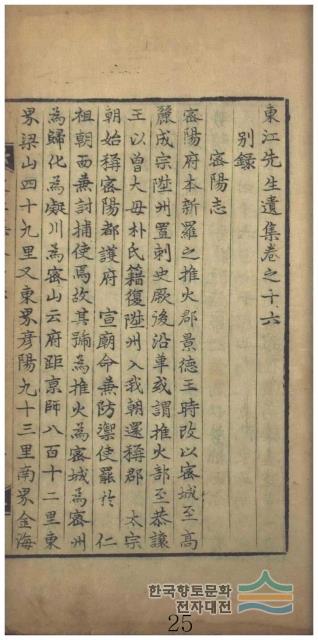 東江先生遺集卷之十六
別錄
密陽志
密陽府本新羅之推火郡景德王時改以密城至高
麗成宗陞州置刺史厥後沿革或謂推火部至恭讓
王以曾大母朴氏籍復陞州入我朝還稱郡 太宗
朝始稱密陽都護府 宣廟命兼防禦使罷於 仁
祖朝西兼討捕使焉故其號為推火為密城為密州
為歸化為凝川為密山云府距京師八百十二里東
界梁山四十九里又東界彦陽九十三里南界金海
한국향토문화
전자대전
25